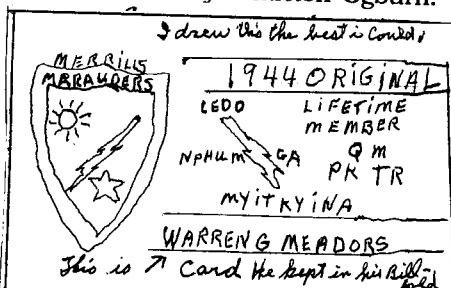 Ogburn.
I drew this the best i could.
MERRILLS
MARAUDERS
1944 ORIGINAL
LEDO LIFETIME
MEMBER
NPHUM GA QM
PK TR
MYITKYINA
WARREN G MEADORS
This is ↗ Card He kept in his Bill-
fold